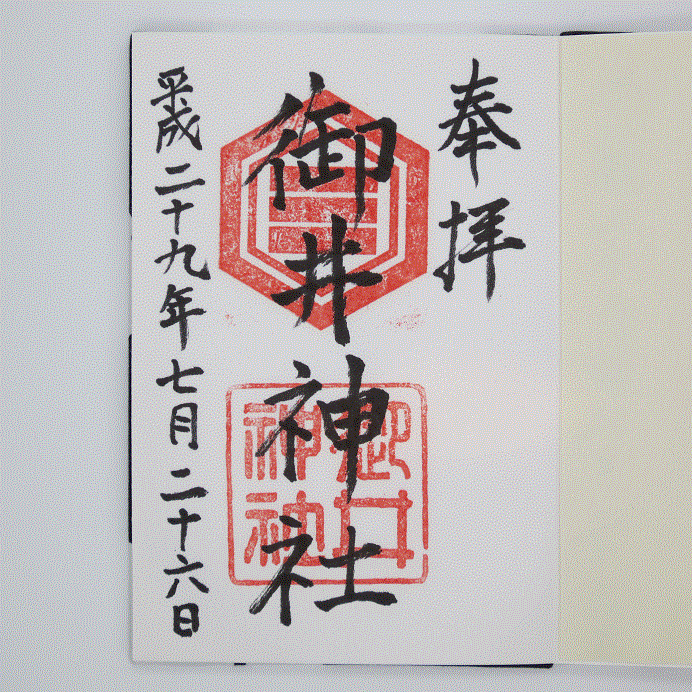 奉拝
御井神社
御井神社
平成二十九年七月二十六日